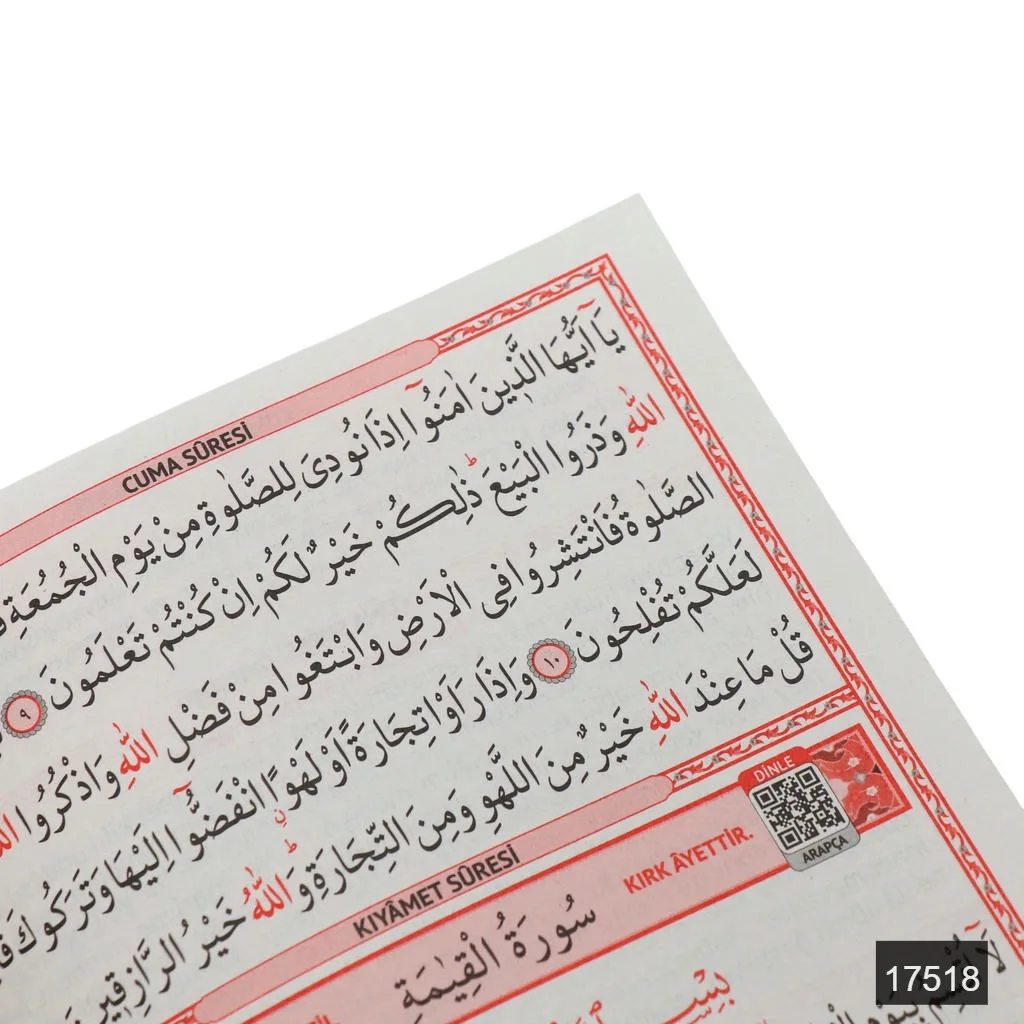 CUMA SÛRESİ
يَا اَيُّهَا الَّذ۪ينَ اٰمَنُٓوا اِذَا نُودِيَ لِلصَّلٰوةِ مِنْ يَوْمِ الْجُمُعَةِ
اللّٰهِ وَذَرُوا الْبَيْعَ ذٰلِكُمْ خَيْرٌ لَكُمْ اِنْ كُنْتُمْ تَعْلَمُونَ ٩
الصَّلٰوةُ فَانْتَشِرُوا فِي الْاَرْضِ وَابْتَغُوا مِنْ فَضْلِ اللّٰهِ وَاذْكُرُوا
لَعَلَّكُمْ تُفْلِحُونَ ١٠ وَاِذَا رَاَوْا تِجَارَةً اَوْ لَهْوًا انْفَضُّٓوا اِلَيْهَا وَتَرَكُوكَ
قُلْ مَا عِنْدَ اللّٰهِ خَيْرٌ مِنَ اللَّهْوِ وَمِنَ التِّجَارَةِ وَاللّٰهُ خَيْرُ الرَّازِق۪ينَ
KIYÂMET SÛRESİ
DİNLE
ARAPÇA
KIRK ÂYETTİR.
سُورَةُ الْقِيٰمَةِ
بِسْمِ
لَٓا اُقْسِمُ بِيَوْمِ
17518